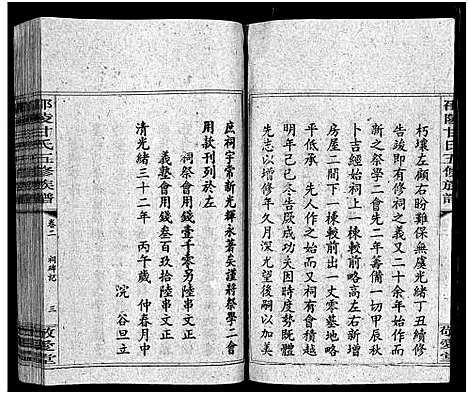 邵陵甘氏五修族譜
敬愛堂
朽壞左顧右盼難保無虞光緒丁丑續修
告竣即有修祠之義又二十余年始合計
新之祭學二會先二年籌備一切甲辰秋
卜吉經始祠上一棟較前略高其下一棟
房屋二間下一棟較前出一丈零墓地略
平低承　先人作之始而又祠有會積越
明年乙巳冬告厥成功夫因時度勢既體
先志以增修年久月深光望後嗣以加美
庶祠宇常新光輝永著矣謹將祭學二會
用款刊列於左
祠祭會用錢壹千零刃陸串文正
義塾會用錢三百玖拾陸串文正
清光緒三十二年　丙午歲　仲春月中
浣　谷旦立
邵陵甘氏五修族譜
卷二　祠碑記　三
敬愛堂